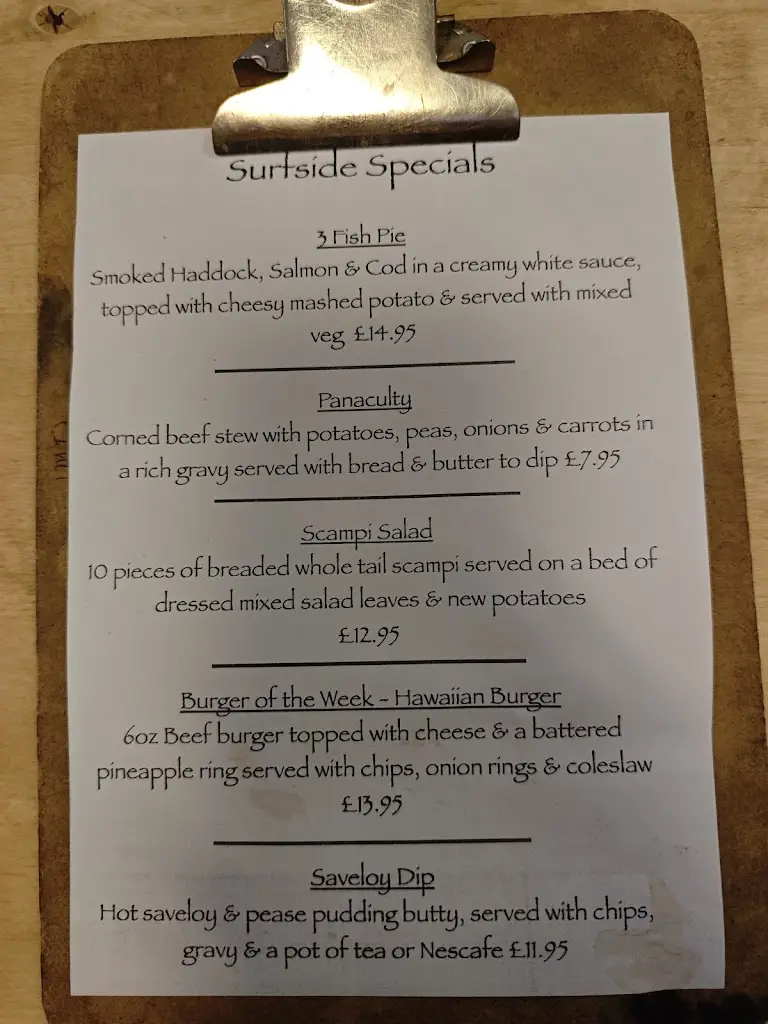 Surfside Specials
3 Fish Pie
Smoked Haddock, Salmon & Cod in a creamy white sauce,
topped with cheesy mashed potato & served with mixed
veg £14.95
Panaculty
Corned beef stew with potatoes, peas, onions & carrots in
a rich gravy served with bread & butter to dip £7.95
Scampi Salad
10 pieces of breaded whole tail scampi served on a bed of
dressed mixed salad leaves & new potatoes
£12.95
Burger of the Week ~ Hawaiian Burger
6oz Beef burger topped with cheese & a battered
pineapple ring served with chips, onion rings & coleslaw
£13.95
Saveloy Dip
Hot saveloy & pease pudding butty, served with chips,
gravy & a pot of tea or Nescafe £11.95